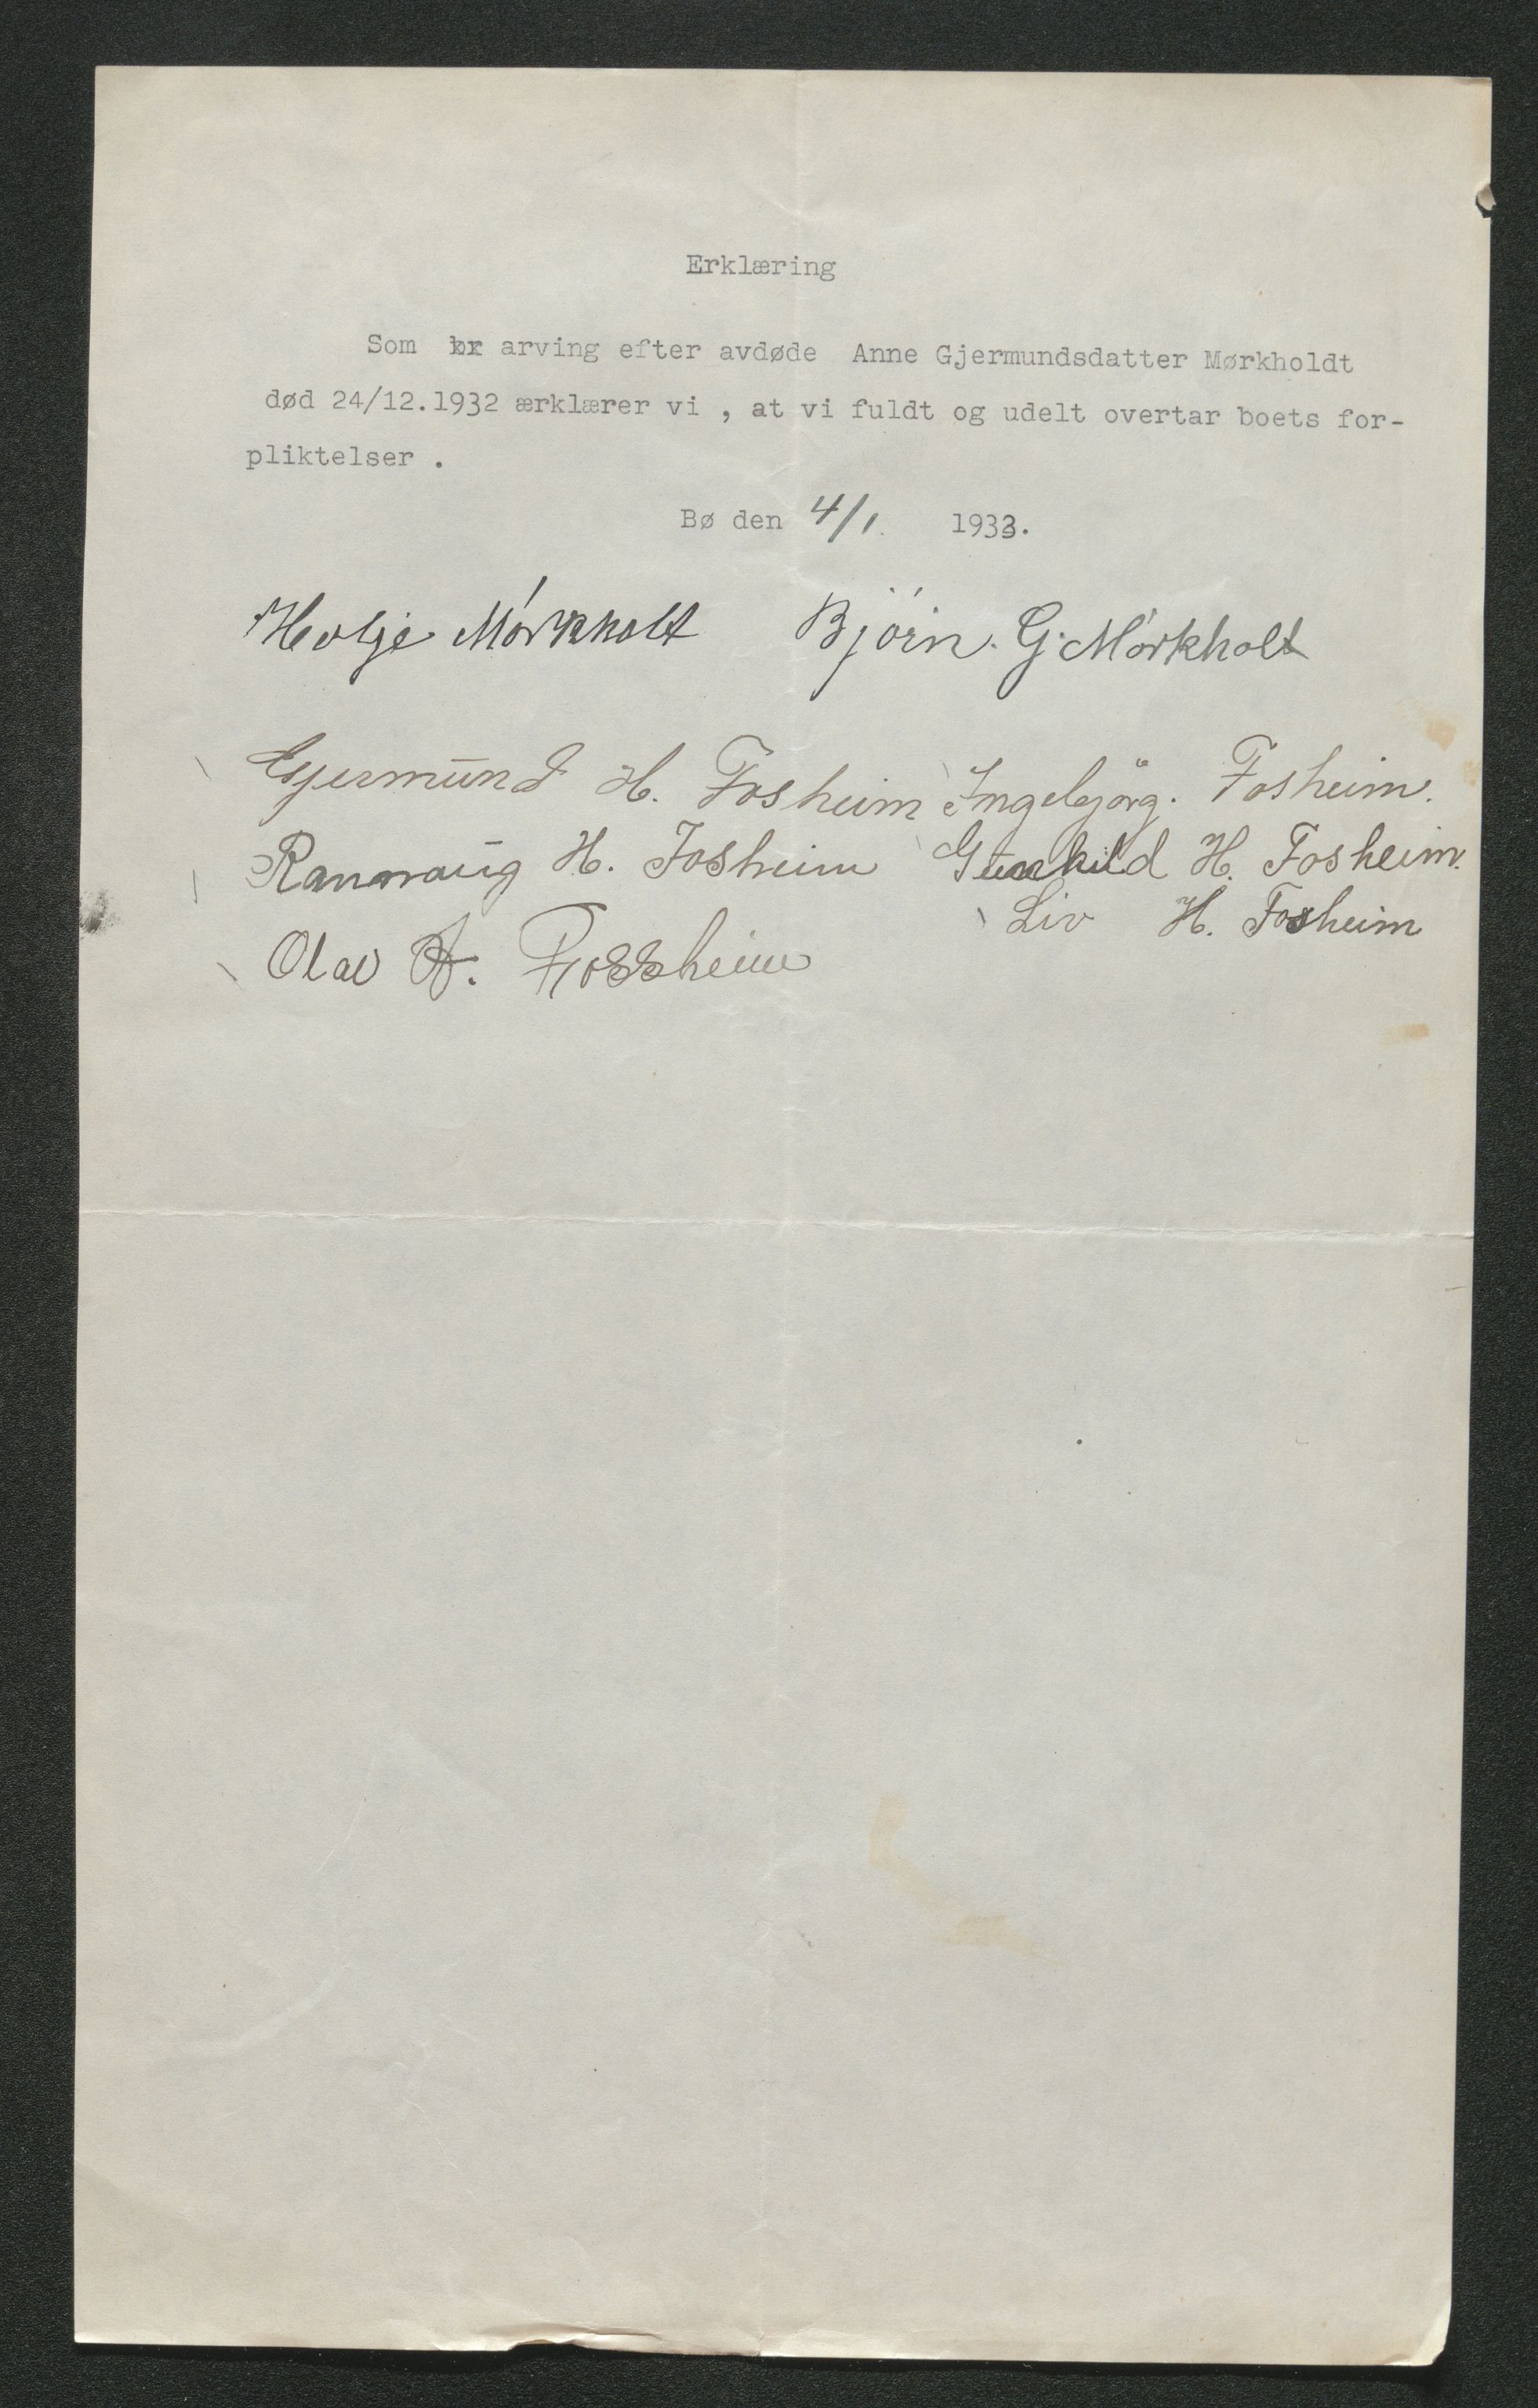 Erklæring
Som arving efter avdøde Anne Gjermundsdatter Mørkholdt
død 24/12.1932 ærklærer vi , at vi fuldt og udelt overtar boets for-
pliktelser .
Bø den 4/1. 1933.
Holje Mørkholt Bjørn. G. Mørkholt
Gjermund H. Fosheim Ingebjørg. Fosheim.
Rannaug H. Fosheim Gunhild H. Fosheim.
Liv H. Fosheim
Olav H. Fossheim